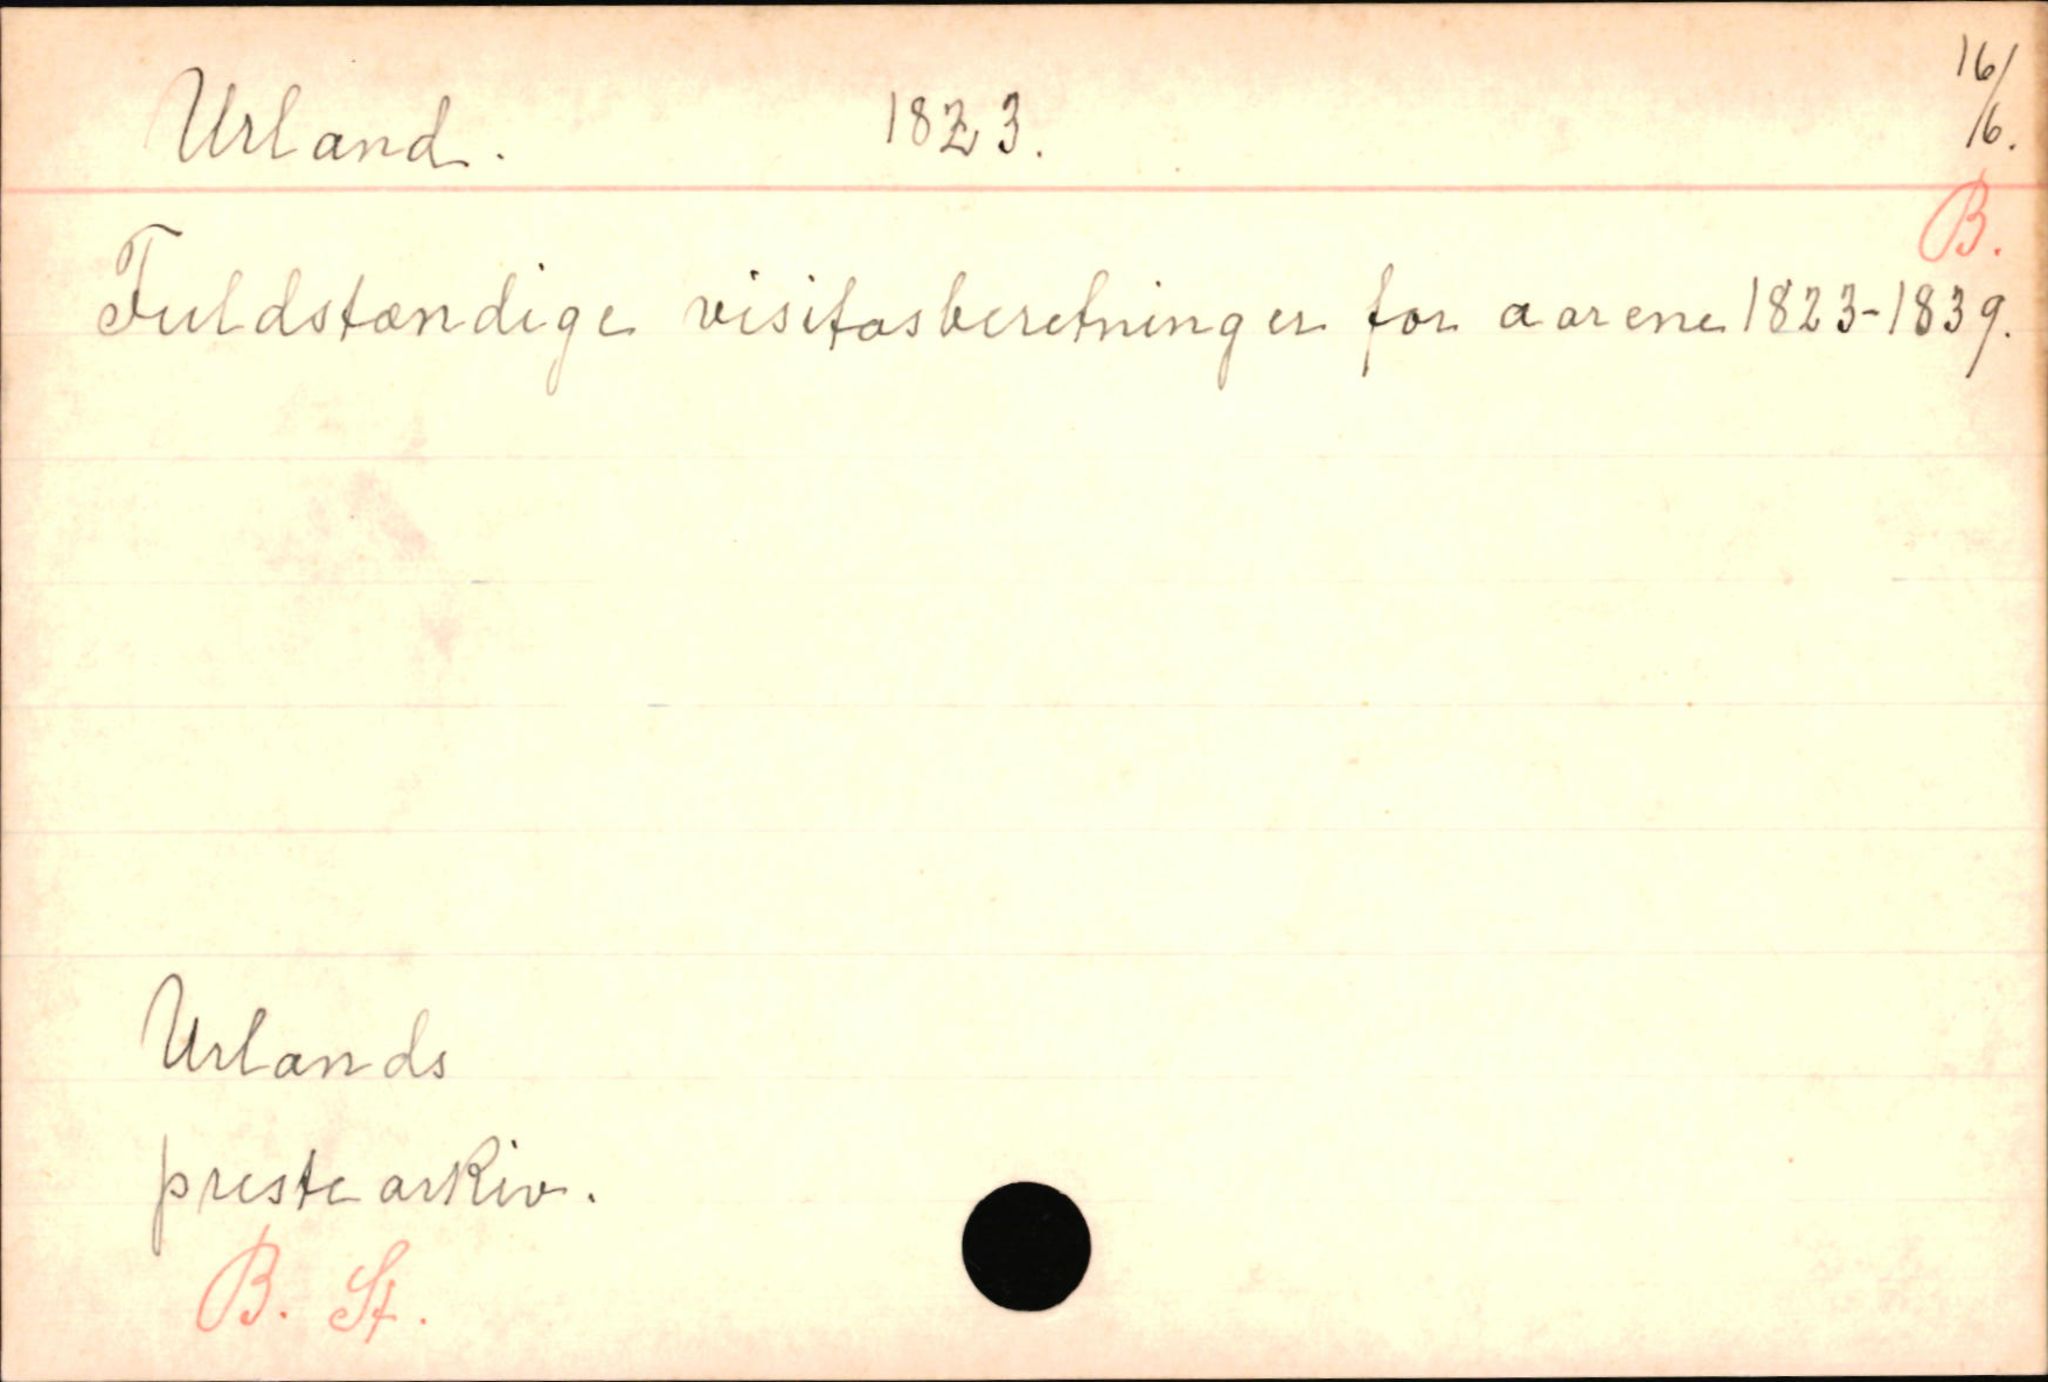 Urland. 1823. 16/6.
B.
Fuldstændige visitasberetninger for aarene 1823-1839.
Urlands
prestearkiv.
B. St.